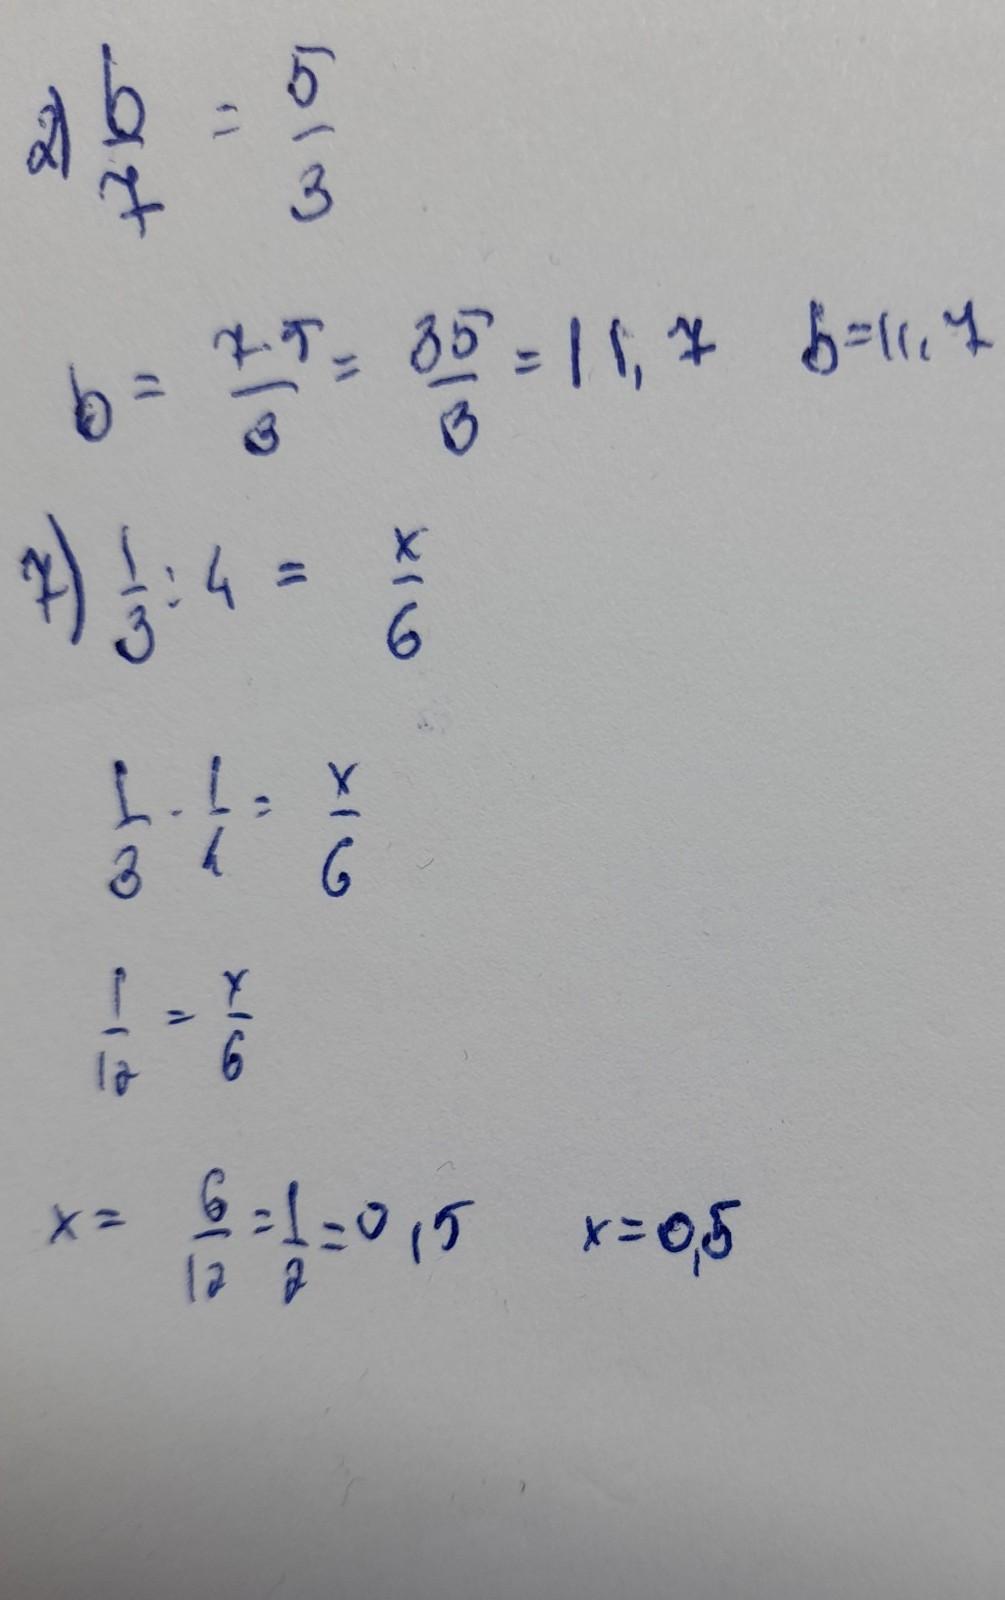 2) b/7 = 5/3
b = 7·5/3 = 35/3 = 11,7 b=11,7
7) 1/3 : 4 = x/6
1/3 · 1/4 = x/6
1/12 = x/6
x = 6/12 = 1/2 = 0,5 x=0,5